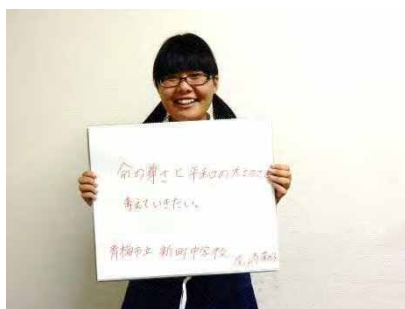 命の尊さと平和の大切さを
考えていきたい。
青梅市立 新町中学校